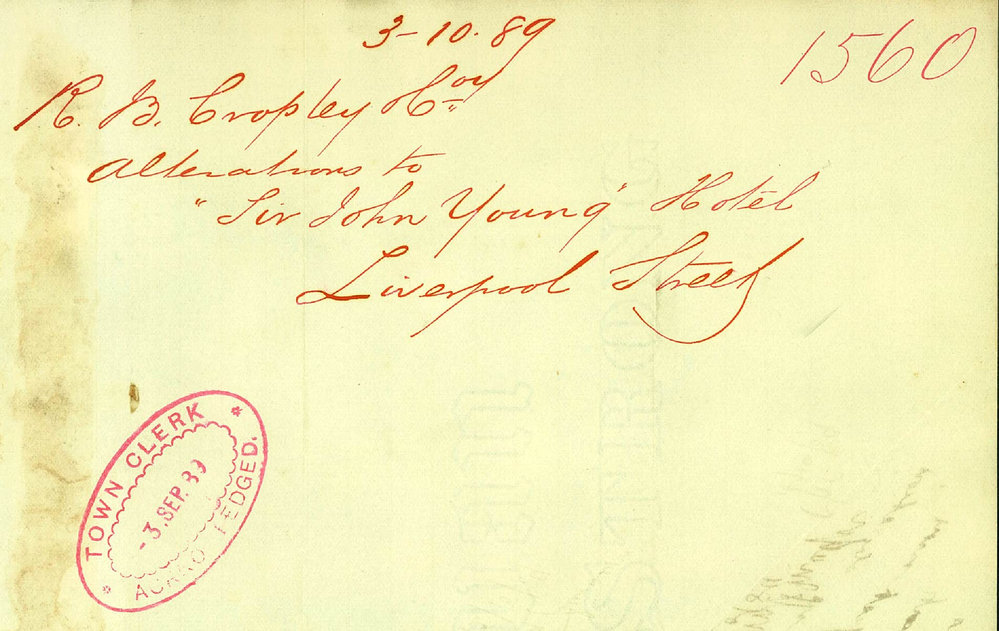 3-10.89
1560
R. B. Cropley &Coy
Alterations to
"Sir John Young" Hotel
Liverpool Street
TOWN CLERK
-3.SEP.89
ACKNO LEDGED.